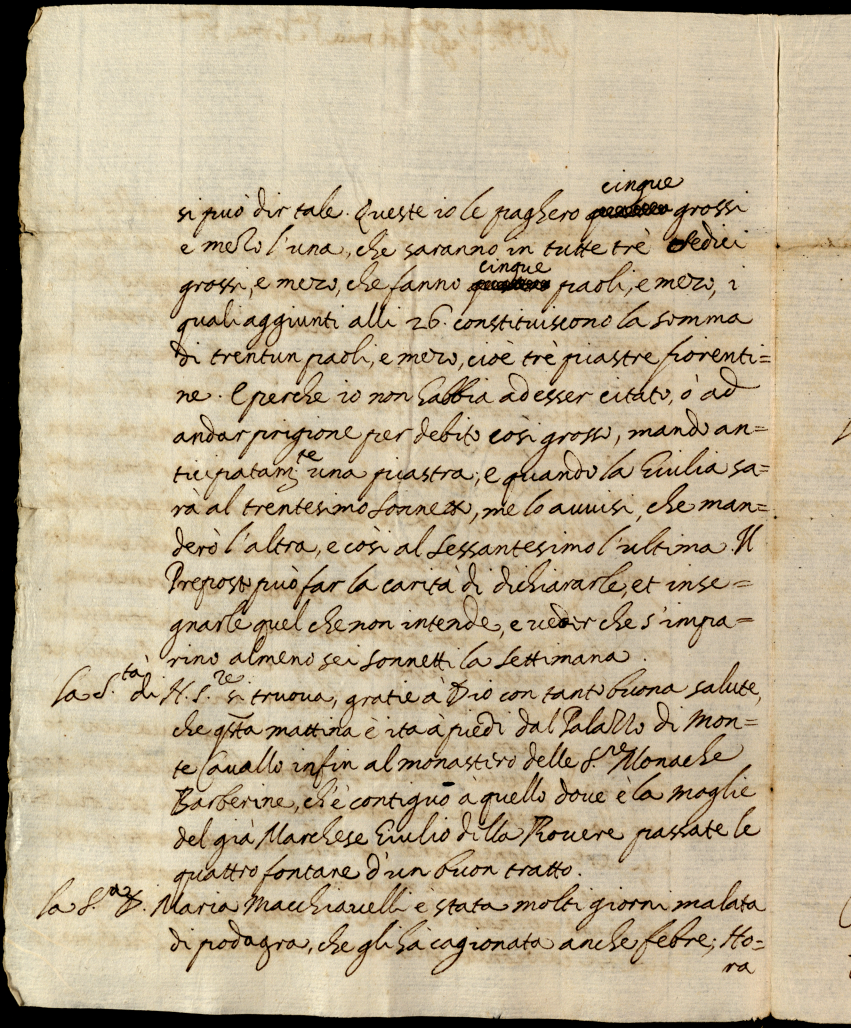 cinque
si può dir tale. Queste io le pagherò grossi
e mezo l'una, che saranno in tutte trè sedici
grossi, e mezo, che fanno cinque paoli, e mezo, i
quali aggiunti alli 26. constituiscono la somma
di trentun paoli, e mezo, cioè trè piastre fiorenti=
ne. E perche io non habbia ad esser citato, ò ad
andar prigione per debito così grosso, mando an=
ticipatam.te una piastra; e quando la Giulia sa=
rà al trentesimo sonnetto, me lo avvisi, che man=
derò l'altra, e così al sessantesimo l'ultima. Il
Preposto può far la carità di dichiararle, et inse=
gnarle quel che non intende, e veder che s'impa=
rino almeno sei sonnetti la settimana.
la S.tà di N.S.re si truova, gratie à Dio con tanto buona salute,
che q̃sta mattina è ita à piedi dal Palazzo di Mon=
te Cavallo infin al monastero delle S.re Monache
Barberine, ch'è contiguo à quello dove è la moglie
del già Marchese Giulio della Rovere passate le
quattro fontane d'un buon tratto.
la S.ra D. Maria Macchiavelli è stata molti giorni malata
di podagra, che gli hà cagionata anche febre; Ho=
ra